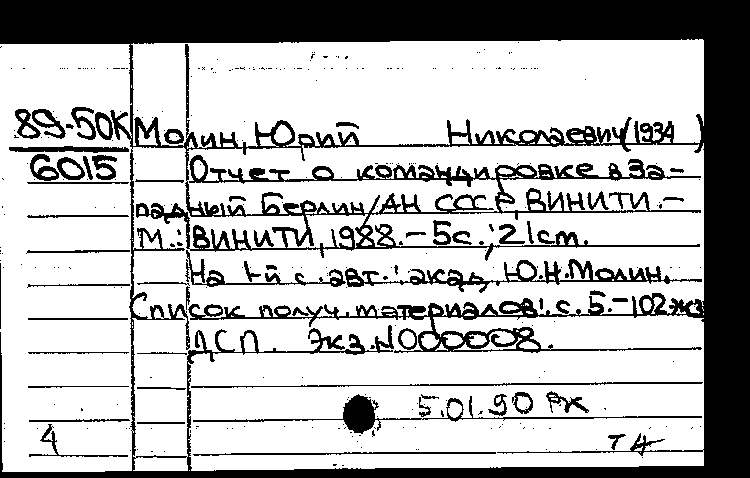 89-50К Молин, Юрий Николаевич (1934 )
6015 Отчет о командировке в За-
падный Берлин / АН СССР, ВИНИТИ. -
М.: ВИНИТИ, 1988. - 5с.; 21см.
На 1-й с. авт.: акад. Ю.Н.Молин.
Список получ. материалов: с. 5. - 102 экз
ДСП. Экз. N000008.
5.01.90 РК
4 т 4